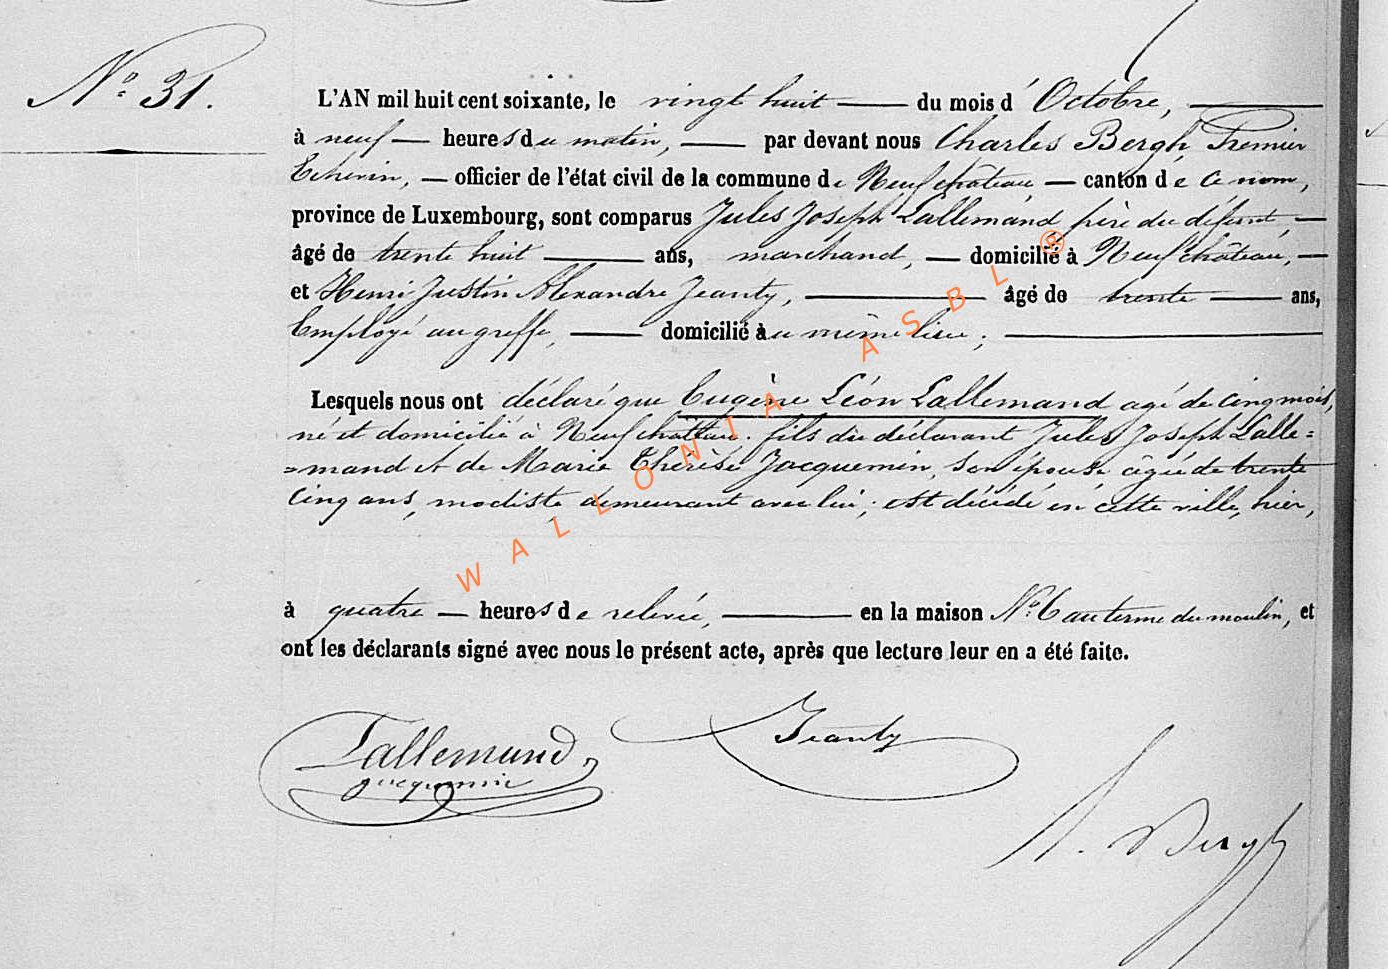 N° 31.
L'AN mil huit cent soixante, le vingt huit du mois d'Octobre,
à neuf heures du matin, par devant nous Charles Bergh, Premier
Echevin, officier de l'état civil de la commune de Neufchâteau canton de ce nom,
province de Luxembourg, sont comparus Jules Joseph Lallemand père du défunt,
âgé de trente huit ans, marchand, domicilié à Neufchâteau,
et Henri Justin Alexandre Jeanty, âgé de trente ans,
Employé au greffe, domicilié au même lieu;
Lesquels nous ont déclaré que Eugène Léon Lallemand agé de cinq mois,
né et domicilié à Neufchâteau. fils du déclarant Jules Joseph Lalle=
=mand et de Marie Thérèse Jacquemin, son épouse âgée de trente
cinq ans, modiste demeurant avec lui; est décédé en cette ville, hier,
à quatre heures de relevée, en la maison N° 6 au terme du moulin, et
ont les déclarants signé avec nous le présent acte, après que lecture leur en a été faite.
Lallemand
Jacquemin
Jeanty
Bergh
WALLONIA ASBL ®